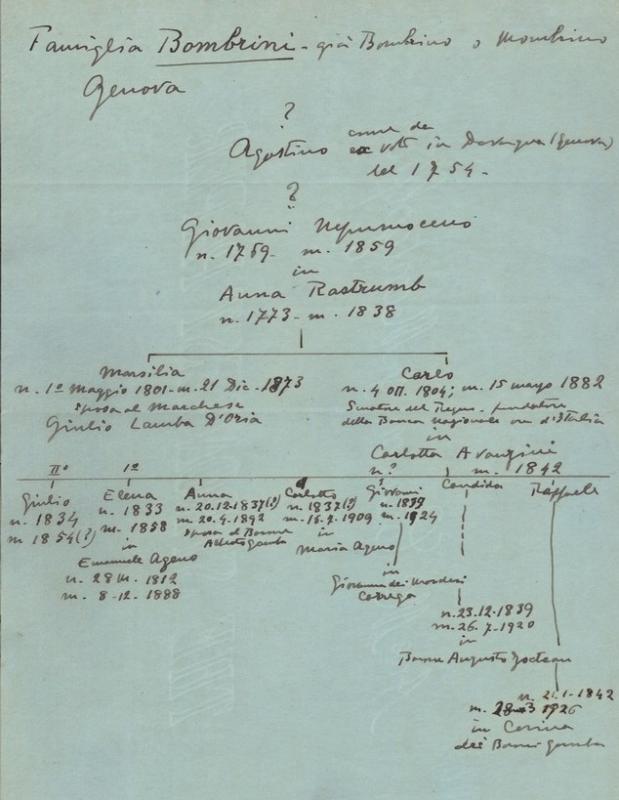 Famiglia Bombrini - già Bombrino o Mombrino
Genova
?
Agostino come da
ex voto in Davagna (Genova)
del 1754 -
?
Giovanni Nepumoceno
n. 1769 - m. 1859
in
Anna Rastrumb
n. 1773 - m. 1838
Marsilia
n. 1º Maggio 1801 - m. 21 Dic. 1873
sposa al Marchese
Giulio Lamba D'Oria
Carlo
n. 4 Ott. 1804; m. 15 marzo 1882
Senatore del Regno - fondatore
della Banca Nazionale ora d'Italia
in
Carlotta Avanzini
n.? m. 1842
IIº
Giulio
n. 1834
m 1854 (?)
1º
Elena
n. 1833
m. 1858
in
Emanuele Ageno
n. 28 M. 1812
m. 8-12-1888
Anna
n. 20.12.1837 (?)
m. 20.4.1892
sposa al Barone
Gamba
Carlotto
n. 1837 (?)
m. 16.7.1909
in
Maria Ageno
Giovanni
n. 1839
m. 1924
in
Giovanna dei Marchesi
Carrega
Candida
n. 23.12.1839
m. 26.7.1920
in
Barone Augusto Jocteau
Raffaele
n. 21.1.1842
m. 28-3 1926
in
dei Baroni Gamba